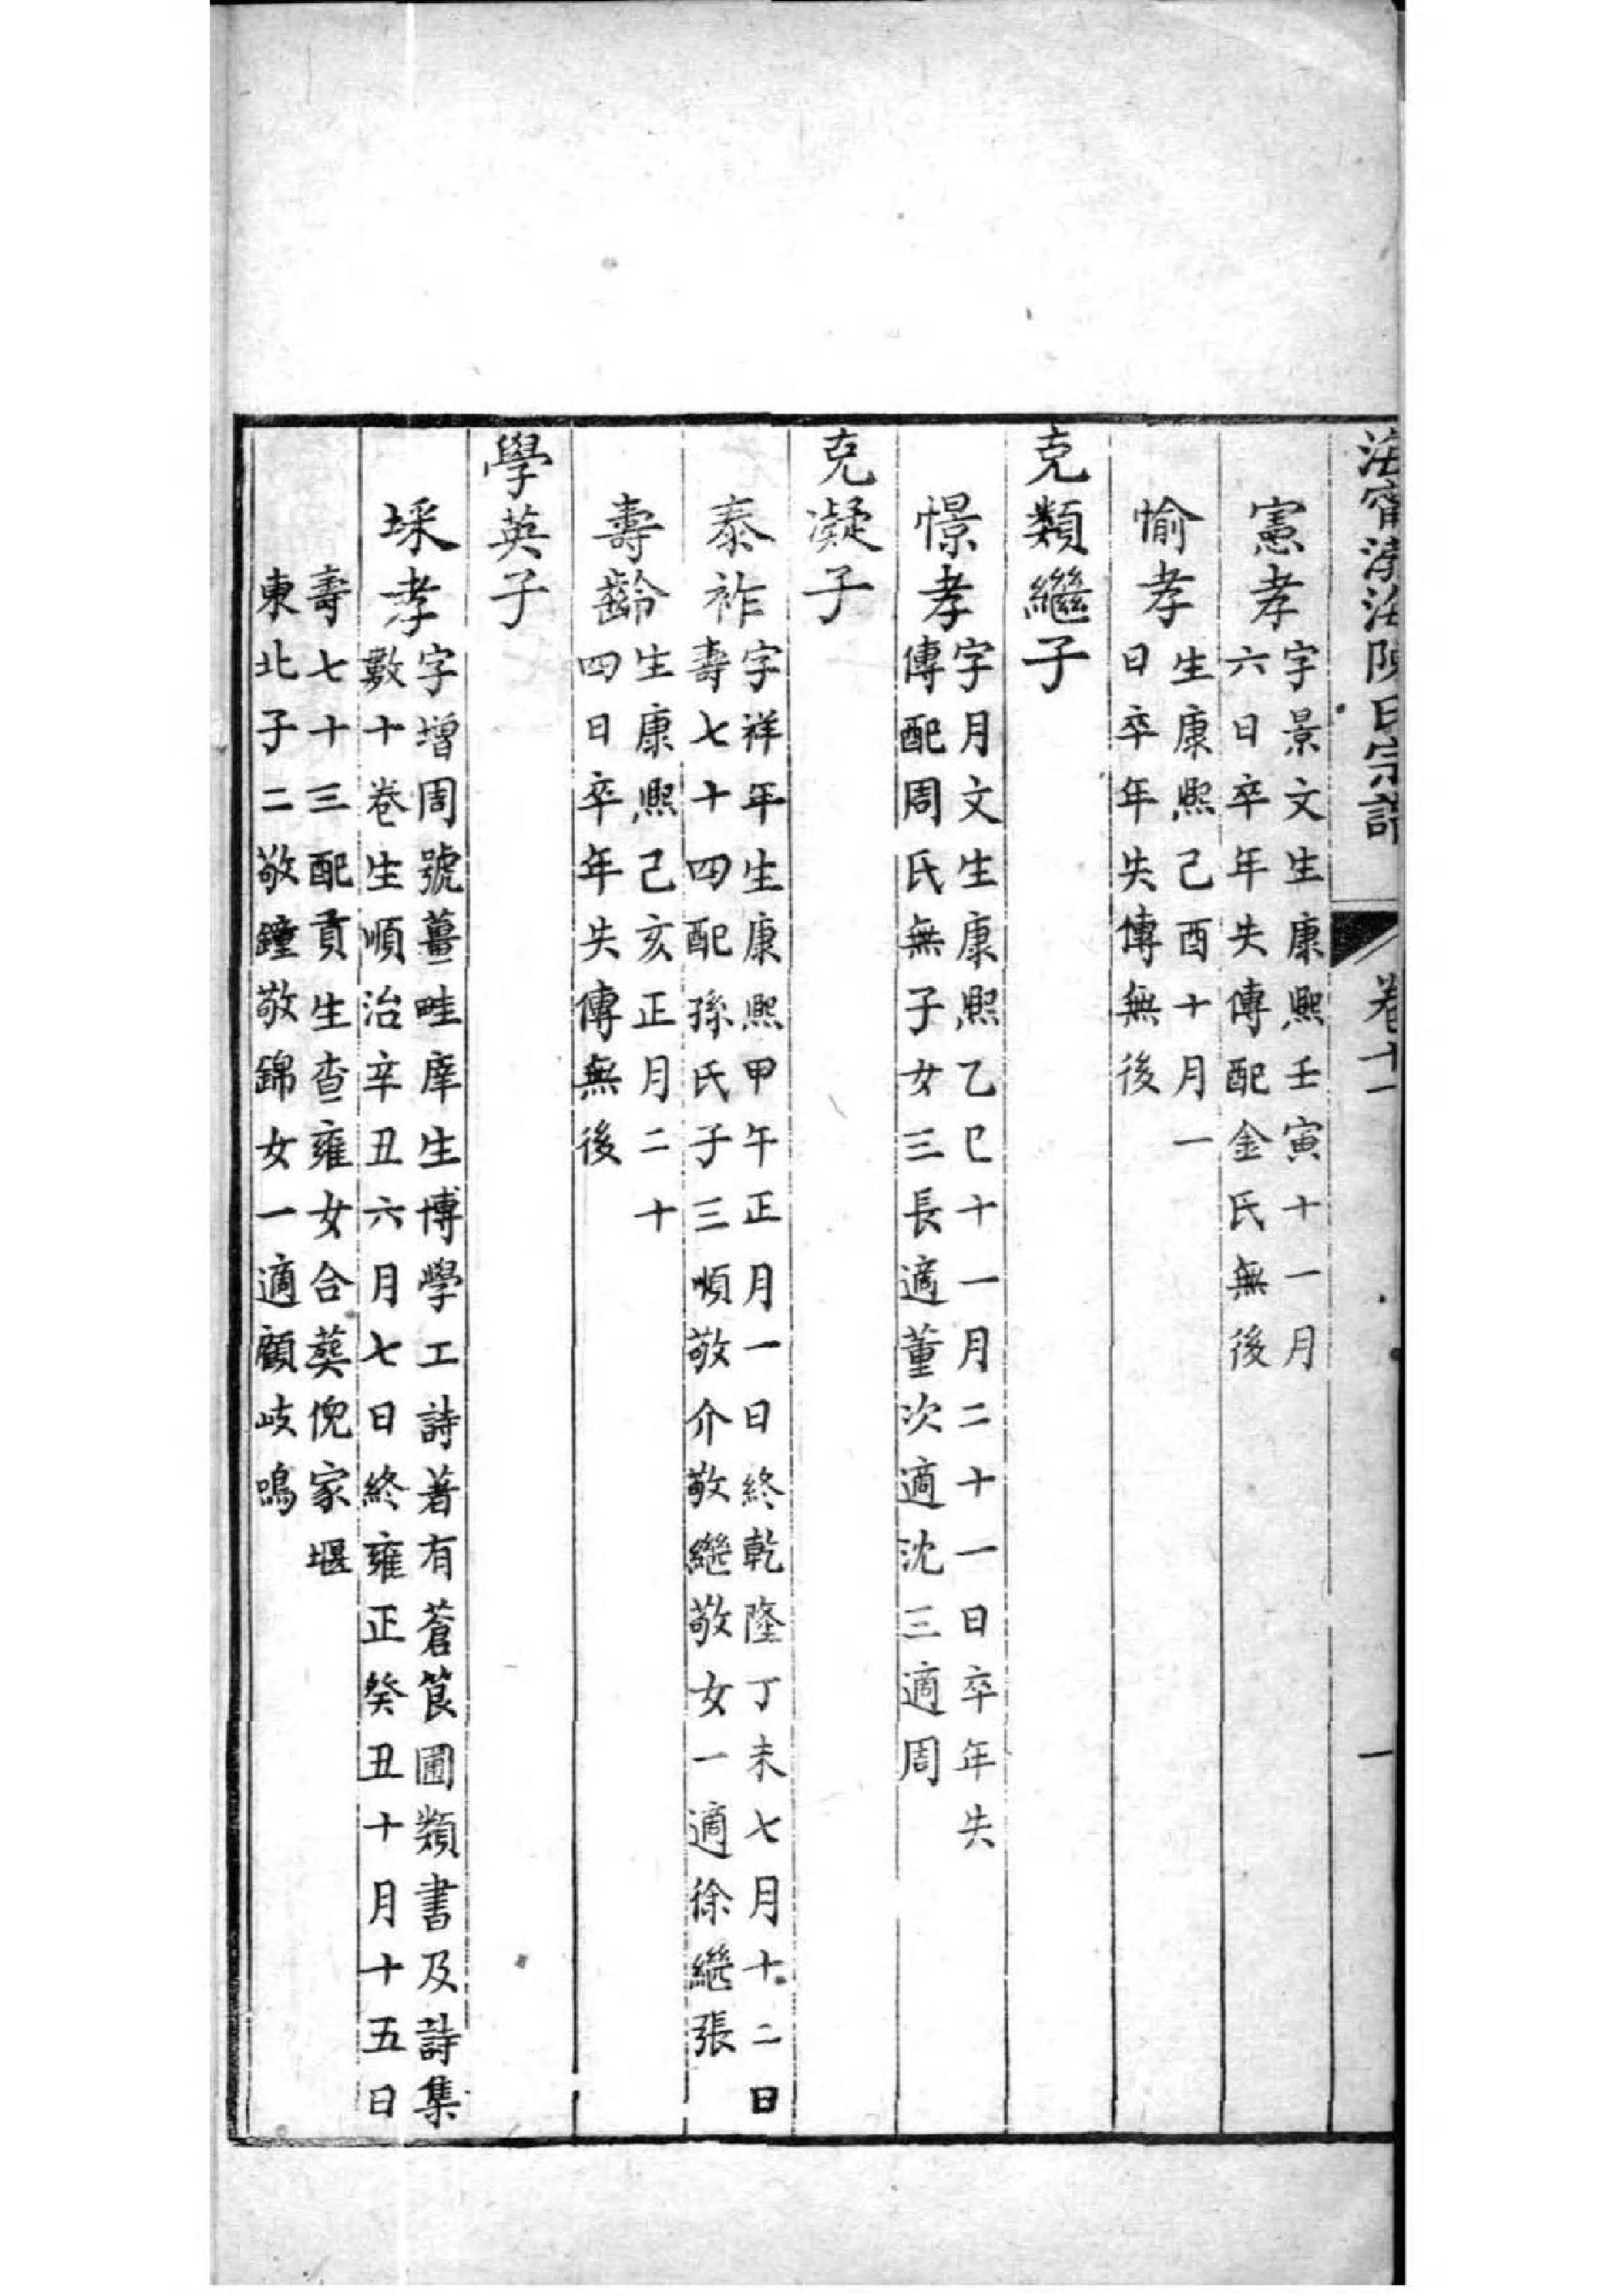 海甯渤海陳氏宗譜 卷十一 一
憲孝
字景文生康熙壬寅十一月
六日卒年失傳配金氏無後
愉孝
生康熙己酉十月一
日卒年失傳無後
克類繼子
憬孝
字月文生康熙乙巳十一月二十一日卒年失
傳配周氏無子女三長適董次適沈三適周
克凝子
泰祚
字祥年生康熙甲午正月一日終乾隆丁未七月十二日
壽七十四配孫氏子三順敬介敬繼敬女一適徐繼張
壽齡
生康熙己亥正月二十
四日卒年失傳無後
學英子
埰孝
字增周號薑畦庠生博學工詩著有蒼筤圃類書及詩集
數十卷生順治辛丑六月七日終雍正癸丑十月十五日
壽七十三配貢生查雍女合葬倪家堰
東北子二敬鐘敬錦女一適顧岐鳴